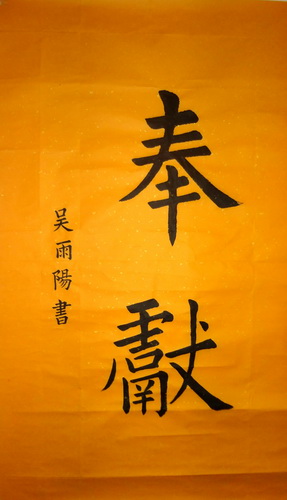 奉獻
吴雨陽書